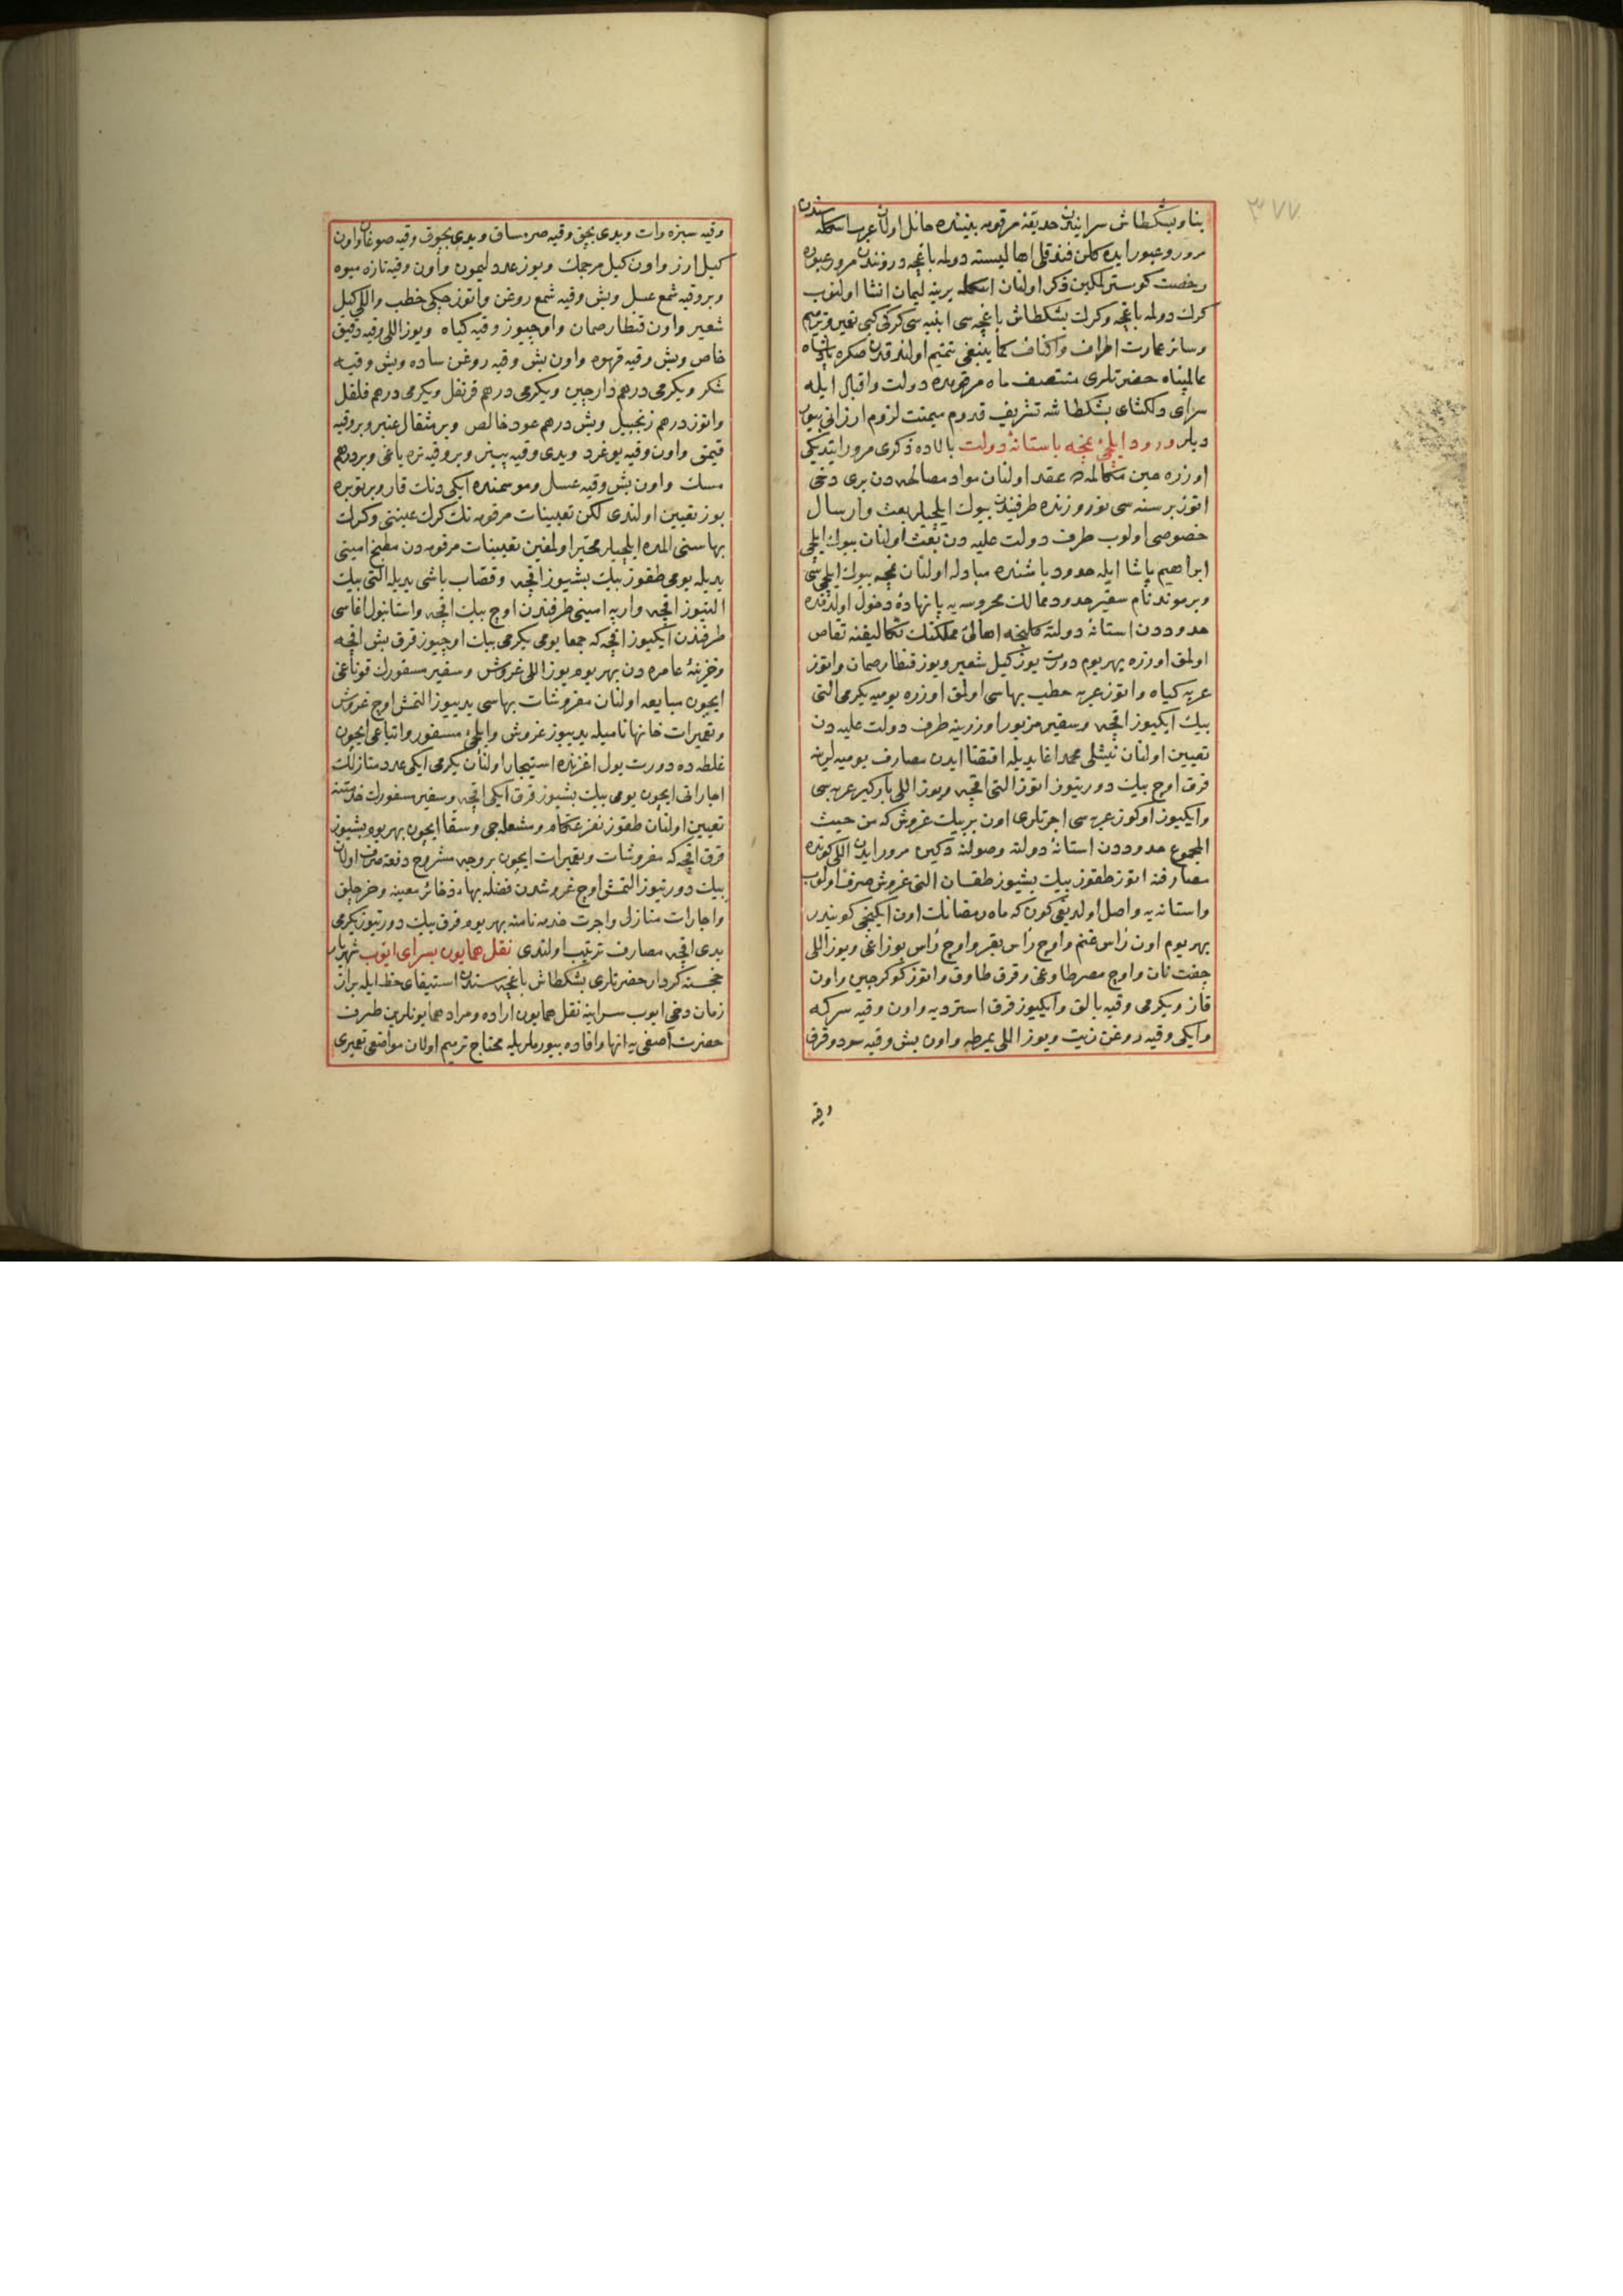 ٣٧٧
بنا وبشكطاش سرايندن حديقهٔ مرقومه بيننده حائل اولان عرب اسكله سندن
مرور وعبور ايده كلن فندقلى اهاليسنه دولمه باغچه دروندن مرور عبوره
رخصت كوسترلمكين ذكر اولنان اسكله يرينه ليمان انشا اولنوب
كرك دولمه باغچه وكرك بشكطاش باغچه سى ابنيه سى كركى كبى تعمير وترميم
وسائر عمارت اطراف واكناف كما ينبغى تتميم اولندقدن صكره پادشاه
عالمپناه حضرتلرى منتصف ماه مرقومده دولت واقبال ايله
سراى دلكشاى بشكطاشه تشريف قدوم ميمنت لزوم ارزانى بيور
ديلر ورود ايلچئ نمچه باستانهٔ دولت بالاده ذكرى مرور ايتديكى
اوزره حين مكالمه ده عقد اولنان مواد مصالحه دن برى دخى
اتوز بر سنه سى نوروزنده طرفيندن بيوك ايلچيلر بعث وارسال
خصوصى اولوب طرف دولت عليه دن بعث اولنان بيوك ايلچى
ابراهيم پاشا ايله حدود باشنده مبادله اولنان نمچه بيوك ايلچيسى
ويرموند نام سفير حدود ممالك محروسه يه پانهادهٔ دخول اولدقده
حدوددن استانهٔ دولته كلنجه اهالئ مملكتك تكاليفنه تقاص
اولمق اوزره بهر يوم درت يوز كيل شعير ويوز قنطار صمان واتوز
عربه كياه واتوز عربه حطب بهاسى اولمق اوزره يوميه يكرمى التى
بيك ايكيوز اقچه وسفير مزبور اوزرينه طرف دولت عليه دن
تعيين اولنان نيشلى محمد اغا يديله اقتضا ايدن مصارف يوميه لرينه
قرق اوچ بيك دورتيوز اتوز التى اقچه ويوز اللى باركير عربه سى
وايكيوز اوكوز عربه سى اجرتلرى اون بر بيك غروش كه من حيث
المجموع حدوددن استانهٔ دولته وصولنه دكين مرور ايدن اللى كونده
مصارفنه اتوز طقوز بيك بشيوز طقسان التى غروش صرف اولنوب
واستانه يه واصل اولديغى كون كه ماه رمضانك اون ايكنجى كونيدر
بهر يوم اون رأس غنم واوچ رأس بقر واوچ رأس بوزاغى ويوز اللى
جفت نان واوچ مصر طاوغى وقرق طاوق واتوز كوكرجين واون
قاز ويكرمى وقيه بالق وايكيوز قرق استرديه واون وقيه سركه
وايكى وقيه روغن زيت ويوز اللى يمرطه واون بش وقيه سود وقرق
وقيه
وقيه سبزه وات ويدى بچق وقيه صرمساق ويدى بچوق وقيه صوغان واون
كيل ارز واون كيل مرجمك ويوز عدد ليمون واون وقيه تازه ميوه
وبر وقيه شمع عسل وبش وقيه شمع روغن واتوز چكى حطب واللى كيل
شعير واون قنطار صمان واوچيوز وقيه كياه ويوز اللى وقيه دقيق
خاص وبش وقيه قهوه واون بش وقيه روغن ساده وبش وقيه
شكر ويكرمى درهم دارچين ويكرمى درهم قرنفل ويكرمى درهم فلفل
واتوز درهم زنجبيل وبش درهم عود خالص وبر مثقال عنبر وبر وقيه
قيمق واون وقيه يوغرد ويدى وقيه پينير وبر وقيه تره ياغى وبر درهم
مسك واون بش وقيه عسل وموسمنده ايكى دنك قار وبر توبره
بوز تعيين اولندى لكن تعيينات مرقومه نك كرك عيننى وكرك
بهاسنى المده ايلچيلر مخير اولمغين تعيينات مرقومه دن مطبخ امينى
يديله يومى طقوز بيك بشيوز اقچه وقصاب باشى يديله التى بيك
التيوز اقچه وارپه امينى طرفندن اوچ بيك اقچه واستانبول اغاسى
طرفندن ايكيوز اقچه كه جمعا يومى يكرمى بيك اوچيوز قرق بش اقچه
وخزينهٔ عامره دن بهر يوم يوز اللى غروش وسفير مسفورك قوناغى
ايچون مبايعه اولنان مفروشات بهاسى يديوز التمش اوچ غروش
وتعميرات خانها ناميله يديوز غروش وايلچئ مسفور واتباعى ايچون
غلطه ده دورت يول اغزنده استيجار اولنان يكرمى ايكى عدد منازلك
اجاراتى ايچون يومى بيك بشيوز قرق ايكى اقچه وسفير مسفورك خدمتنه
تعيين اولنان طقوز نفر عكام ومشعله جى وسقا ايچون بهر يوم بشيوز
قرق اقچه كه مفروشات وتعميرات ايچون بر وجه مشروح دفعة صرف اولنان
بيك دورتيوز التمش اوچ غروشدن فضله بهاء ذخائر معينه وخرجلق
واجارات منازل واجرت خدمه نامنه بهر يوم قرق بيك دورتيوز يكرمى
يدى اقچه مصارف ترتيب اولندى نقل همايون بسراى ايوب شهريار
خجسته كردار حضرتلرى بشكطاش باغچه سندن استيفاى حظ ايله براز
زمان دخى ايوب سراينه نقل همايون اراده ومراد همايونلرين طرف
حضرت آصفى يه انها وافاده بيورملريله محتاج ترميم اولان مواضعى تعميرى